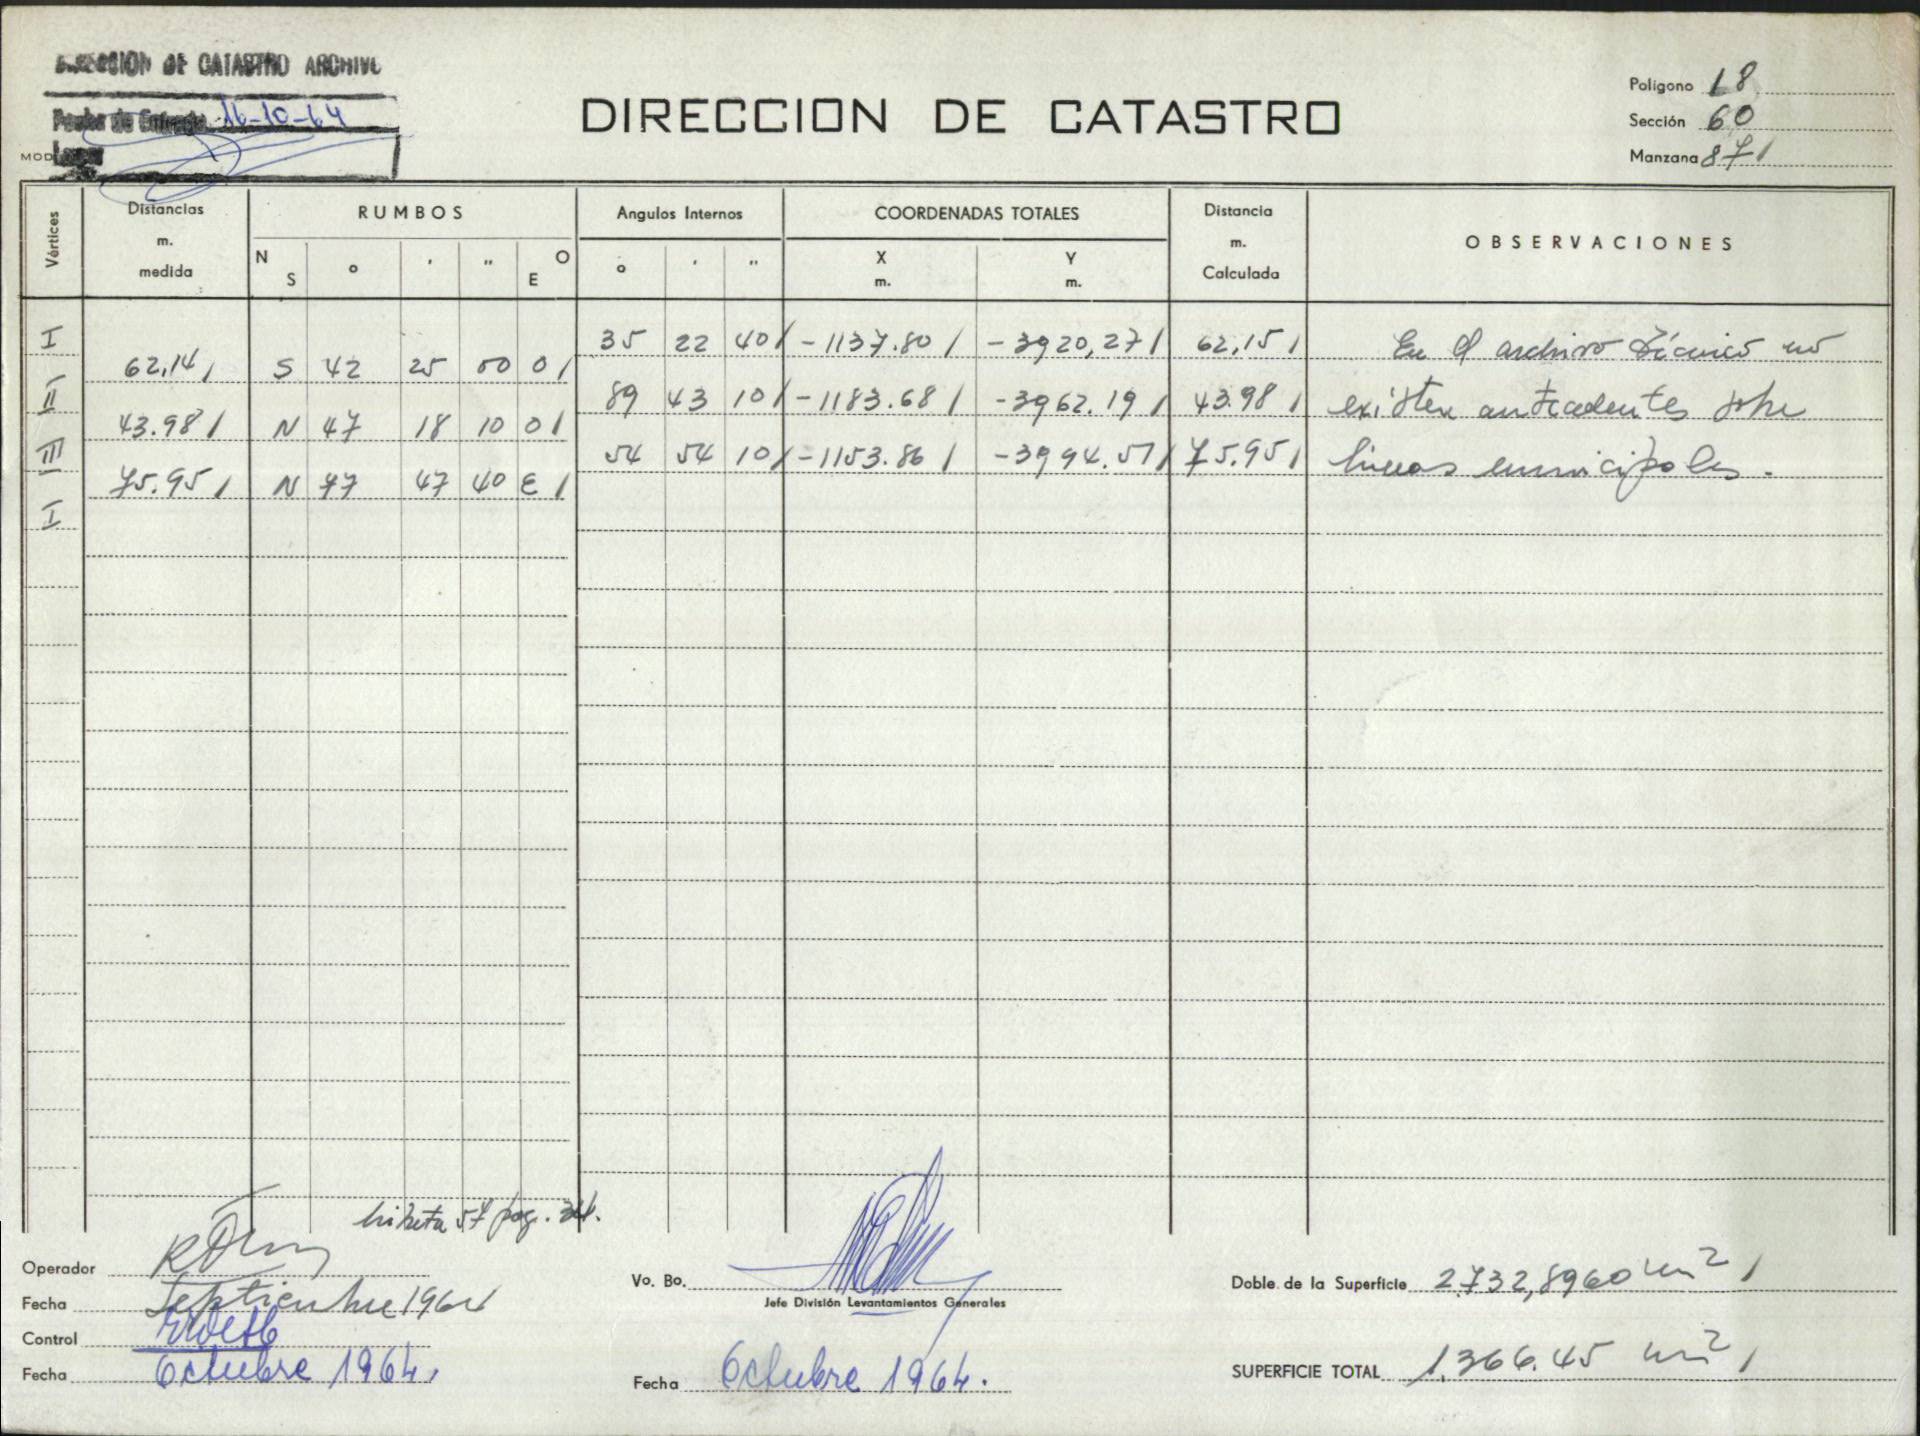 DIRECCION DE CATASTRO ARCHIVO
Fecha de Entrada 16-10-64
Legajo
MOD
DIRECCION DE CATASTRO
Poligono 18
Sección 60
Manzana 871
Vértices
Distancias m. medida
RUMBOS
N S ° ' " E O
Angulos Internos
° ' "
COORDENADAS TOTALES
X m. Y m.
Distancia m. Calculada
OBSERVACIONES
I 35 22 40 -1137.80 -3920,27 62,15 En el archivo técnico no
62,14 S 42 25 00 O
II 89 43 10 -1183.68 -3962.19 43.98 existen antecedentes sobre
43.98 N 47 18 10 O
III 54 54 10 -1153.86 -3994.51 75.95 lineas municipales.
75.95 N 77 47 40 E
I
libreta 57 pag. 34.
Operador
Fecha Septiembre 1964
Control
Fecha Octubre 1964.
Vo. Bo.
Jefe División Levantamientos Generales
Fecha Octubre 1964.
Doble de la Superficie 2.732,8960 m2
SUPERFICIE TOTAL 1.366.45 m2